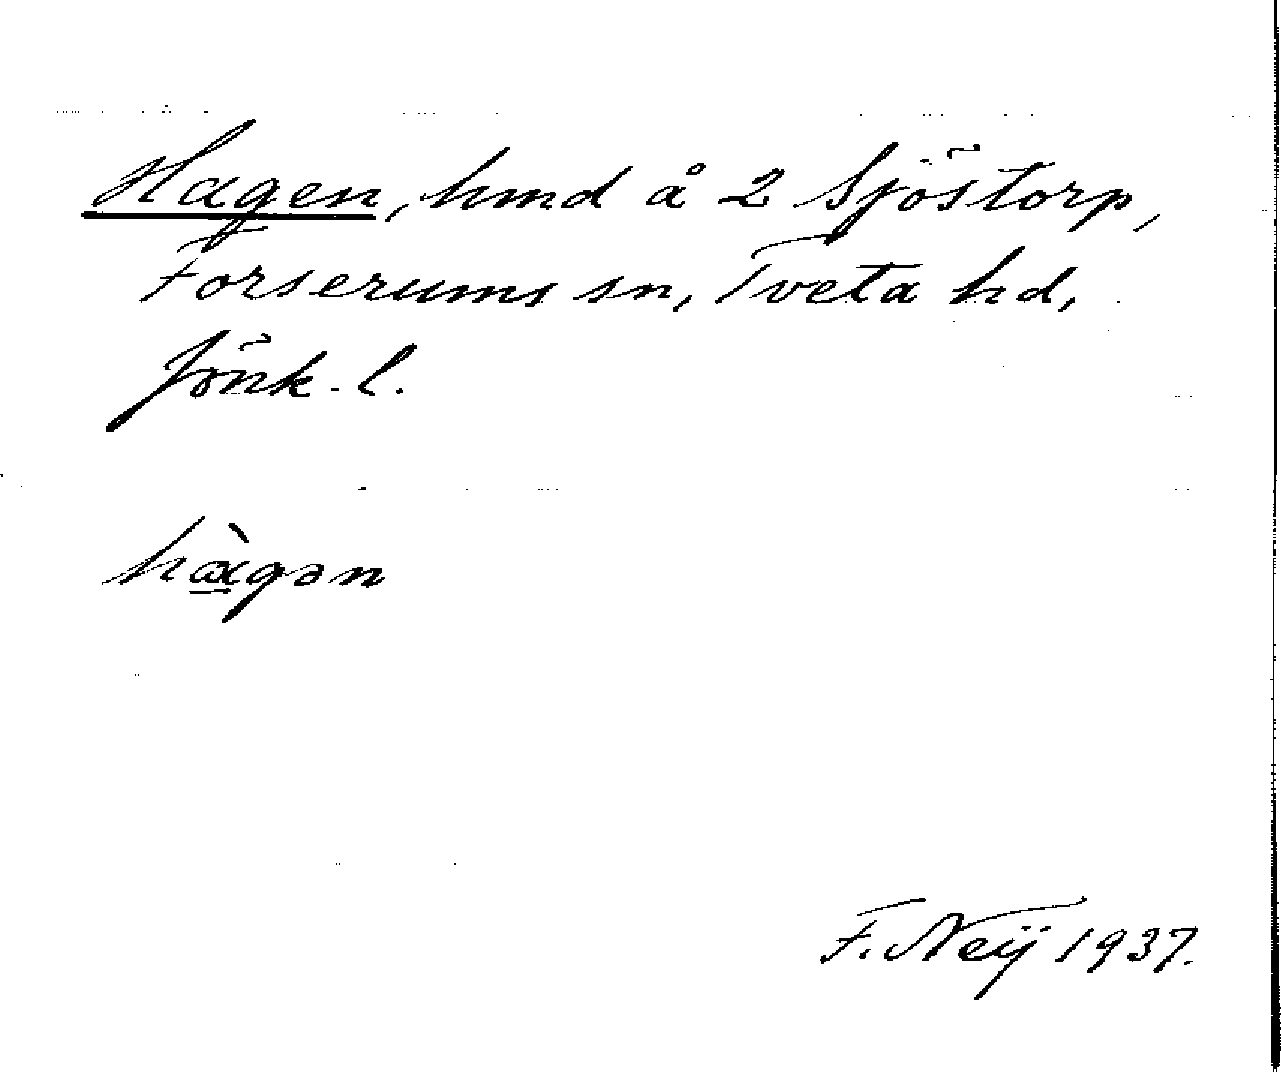 Hagen, hmd å 2 Sjöstorp,
Forserums sn, Tveta hd,
Jönk. l.
hàgən
F. Neÿ 1937.